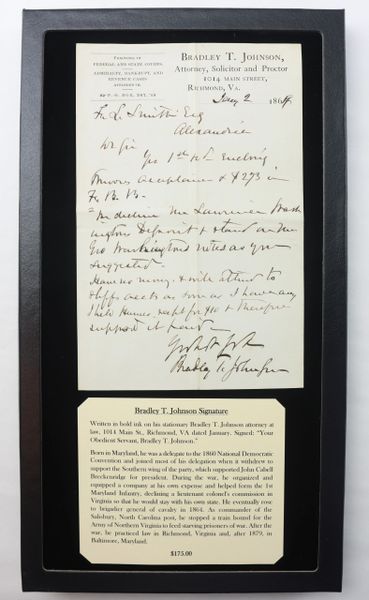 PRACTICING IN
FEDERAL AND STATE COURTS.
ADMIRALTY, BANKRUPT, AND
REVENUE CASES
ATTENDED TO.
P. O. BOX,
BRADLEY T. JOHNSON,
Attorney, Solicitor and Proctor
1014 MAIN STREET,
RICHMOND, VA.
Jany 2 186
Fr. L. Smith Esq
Alexandria
Dr Sir
Yrs 1st
& $273 in
Lawrence Wash
ington Deposit & stand on the
Geo Washington notes as you
suggested.
Have no money, & will attend to
as soon as I have any
I
support it
Bradley T. Johnson
Bradley T. Johnson Signature
Written in bold ink on his stationary Bradley T. Johnson attorney at
law, 1014 Main St., Richmond, VA dated January. Signed: "Your
Obedient Servant, Bradley T. Johnson."
Born in Maryland, he was a delegate to the 1860 National Democratic
Convention and joined most of his delegation when it withdrew to
support the Southern wing of the party, which supported John Cabell
Breckenridge for president. During the war, he organized and
equipped a company at his own expense and helped form the 1st
Maryland Infantry, declining a lieutenant colonel's commission in
Virginia so that he would stay with his own state. He eventually rose
to brigadier general of cavalry in 1864. As commander of the
Salisbury, North Carolina post, he stopped a train bound for the
Army of Northern Virginia to feed starving prisoners of war. After the
war, he practiced law in Richmond, Virginia and, after 1879, in
Baltimore, Maryland.
$175.00